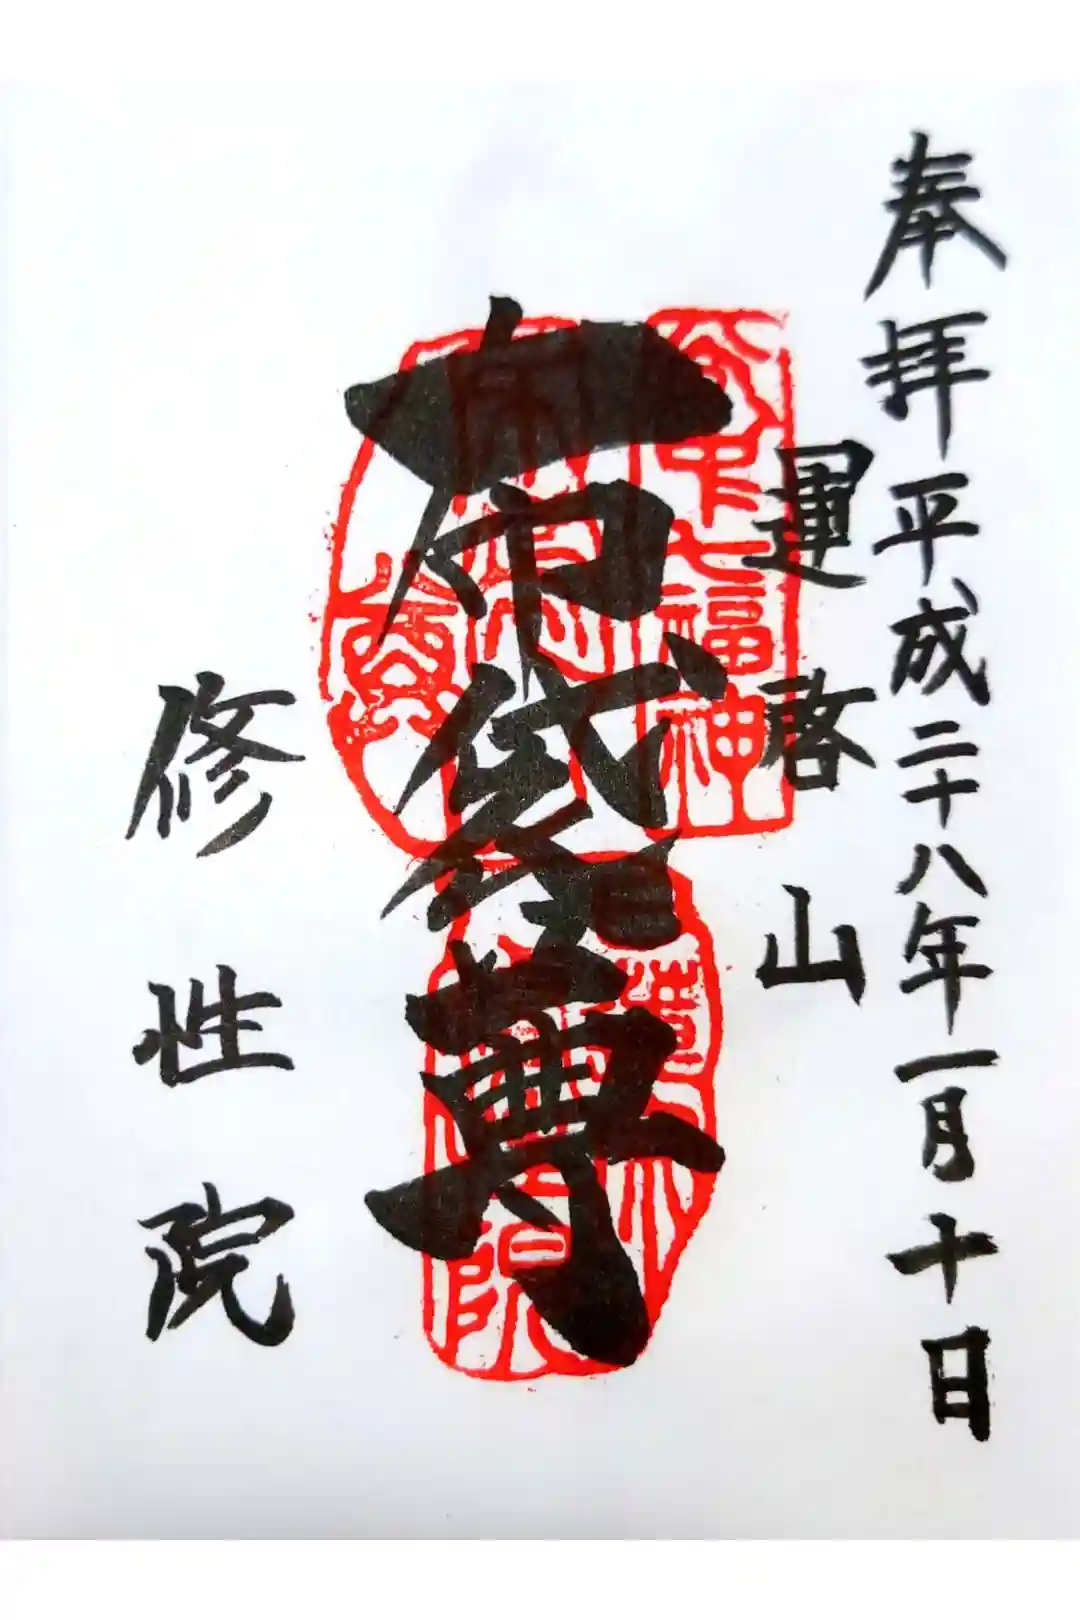 奉拝平成二十八年一月十日
運啓山
布袋尊
谷中七福神
修性院